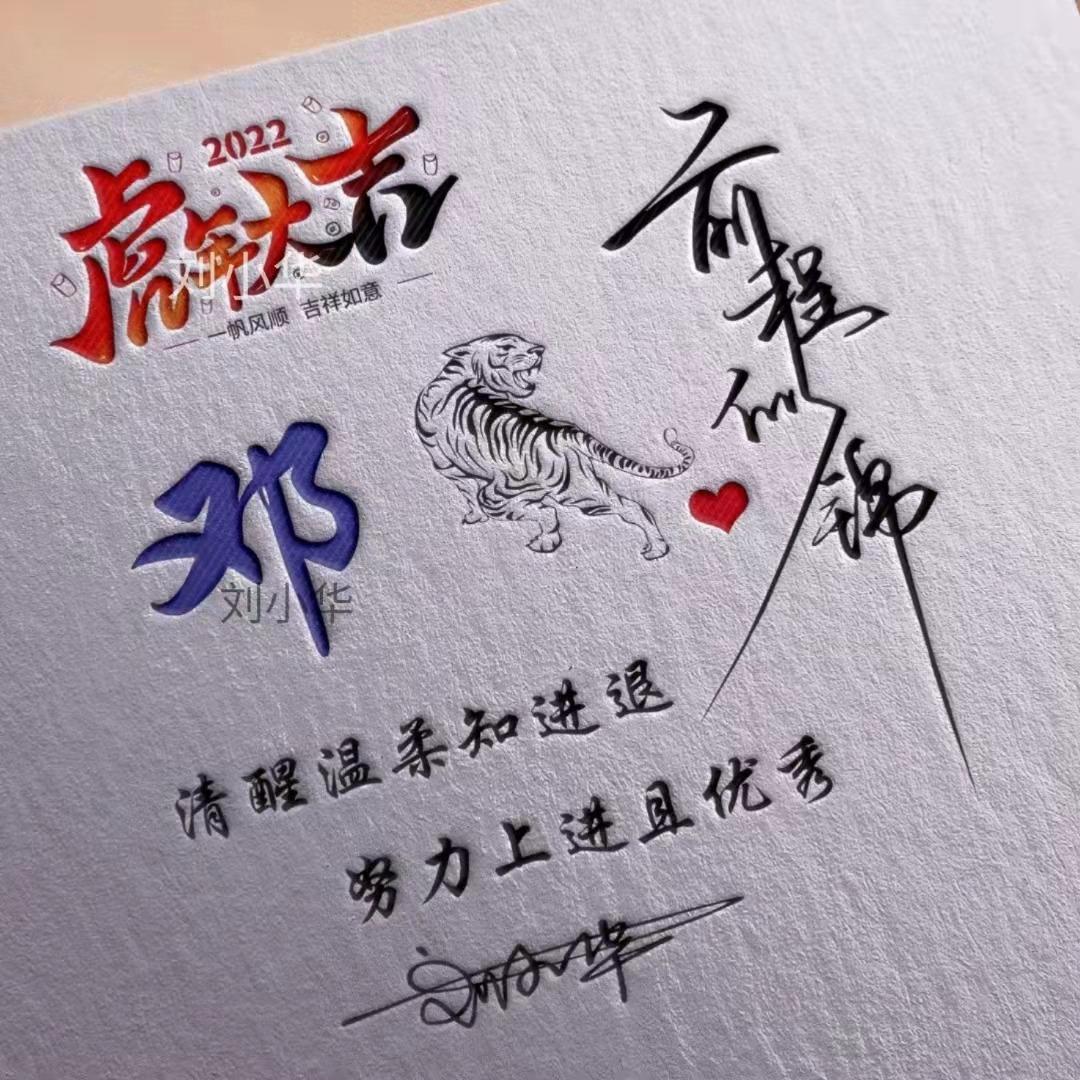 2022
虎年大吉
刘小华
一帆风顺 吉祥如意
前程似锦
邓
刘小华
清醒温柔知进退
努力上进且优秀
刘小华